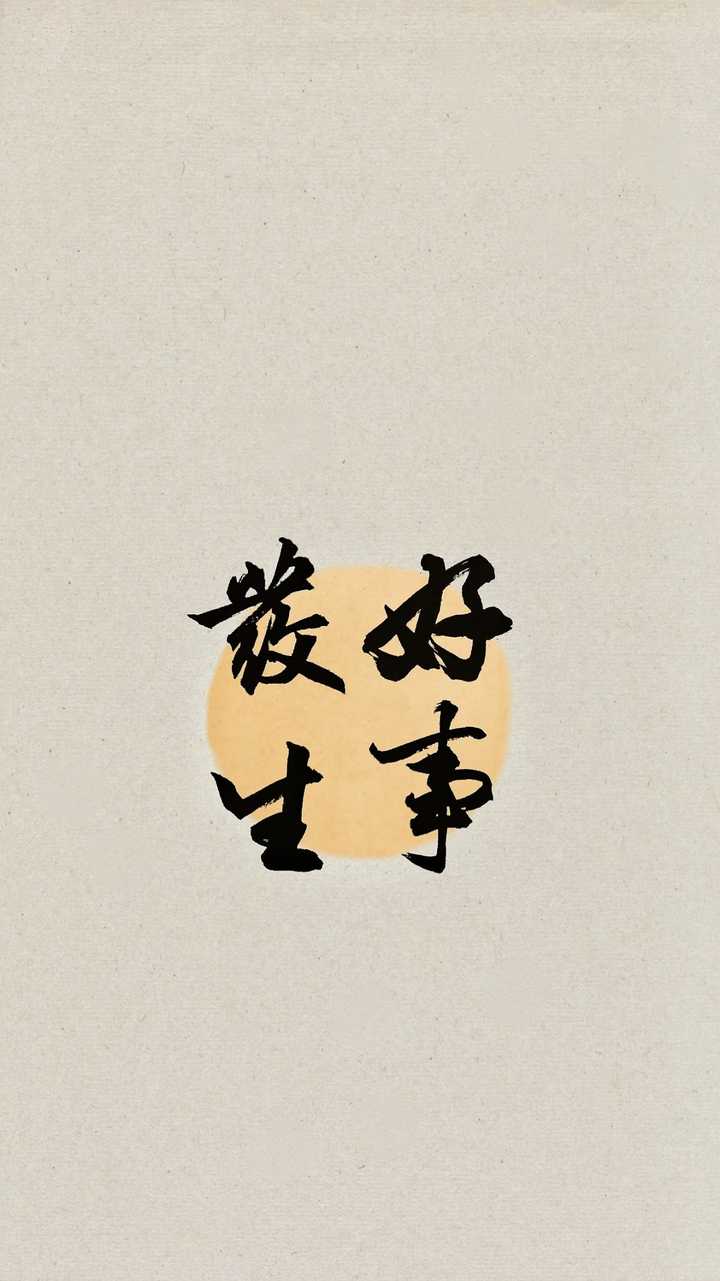 好事
發生